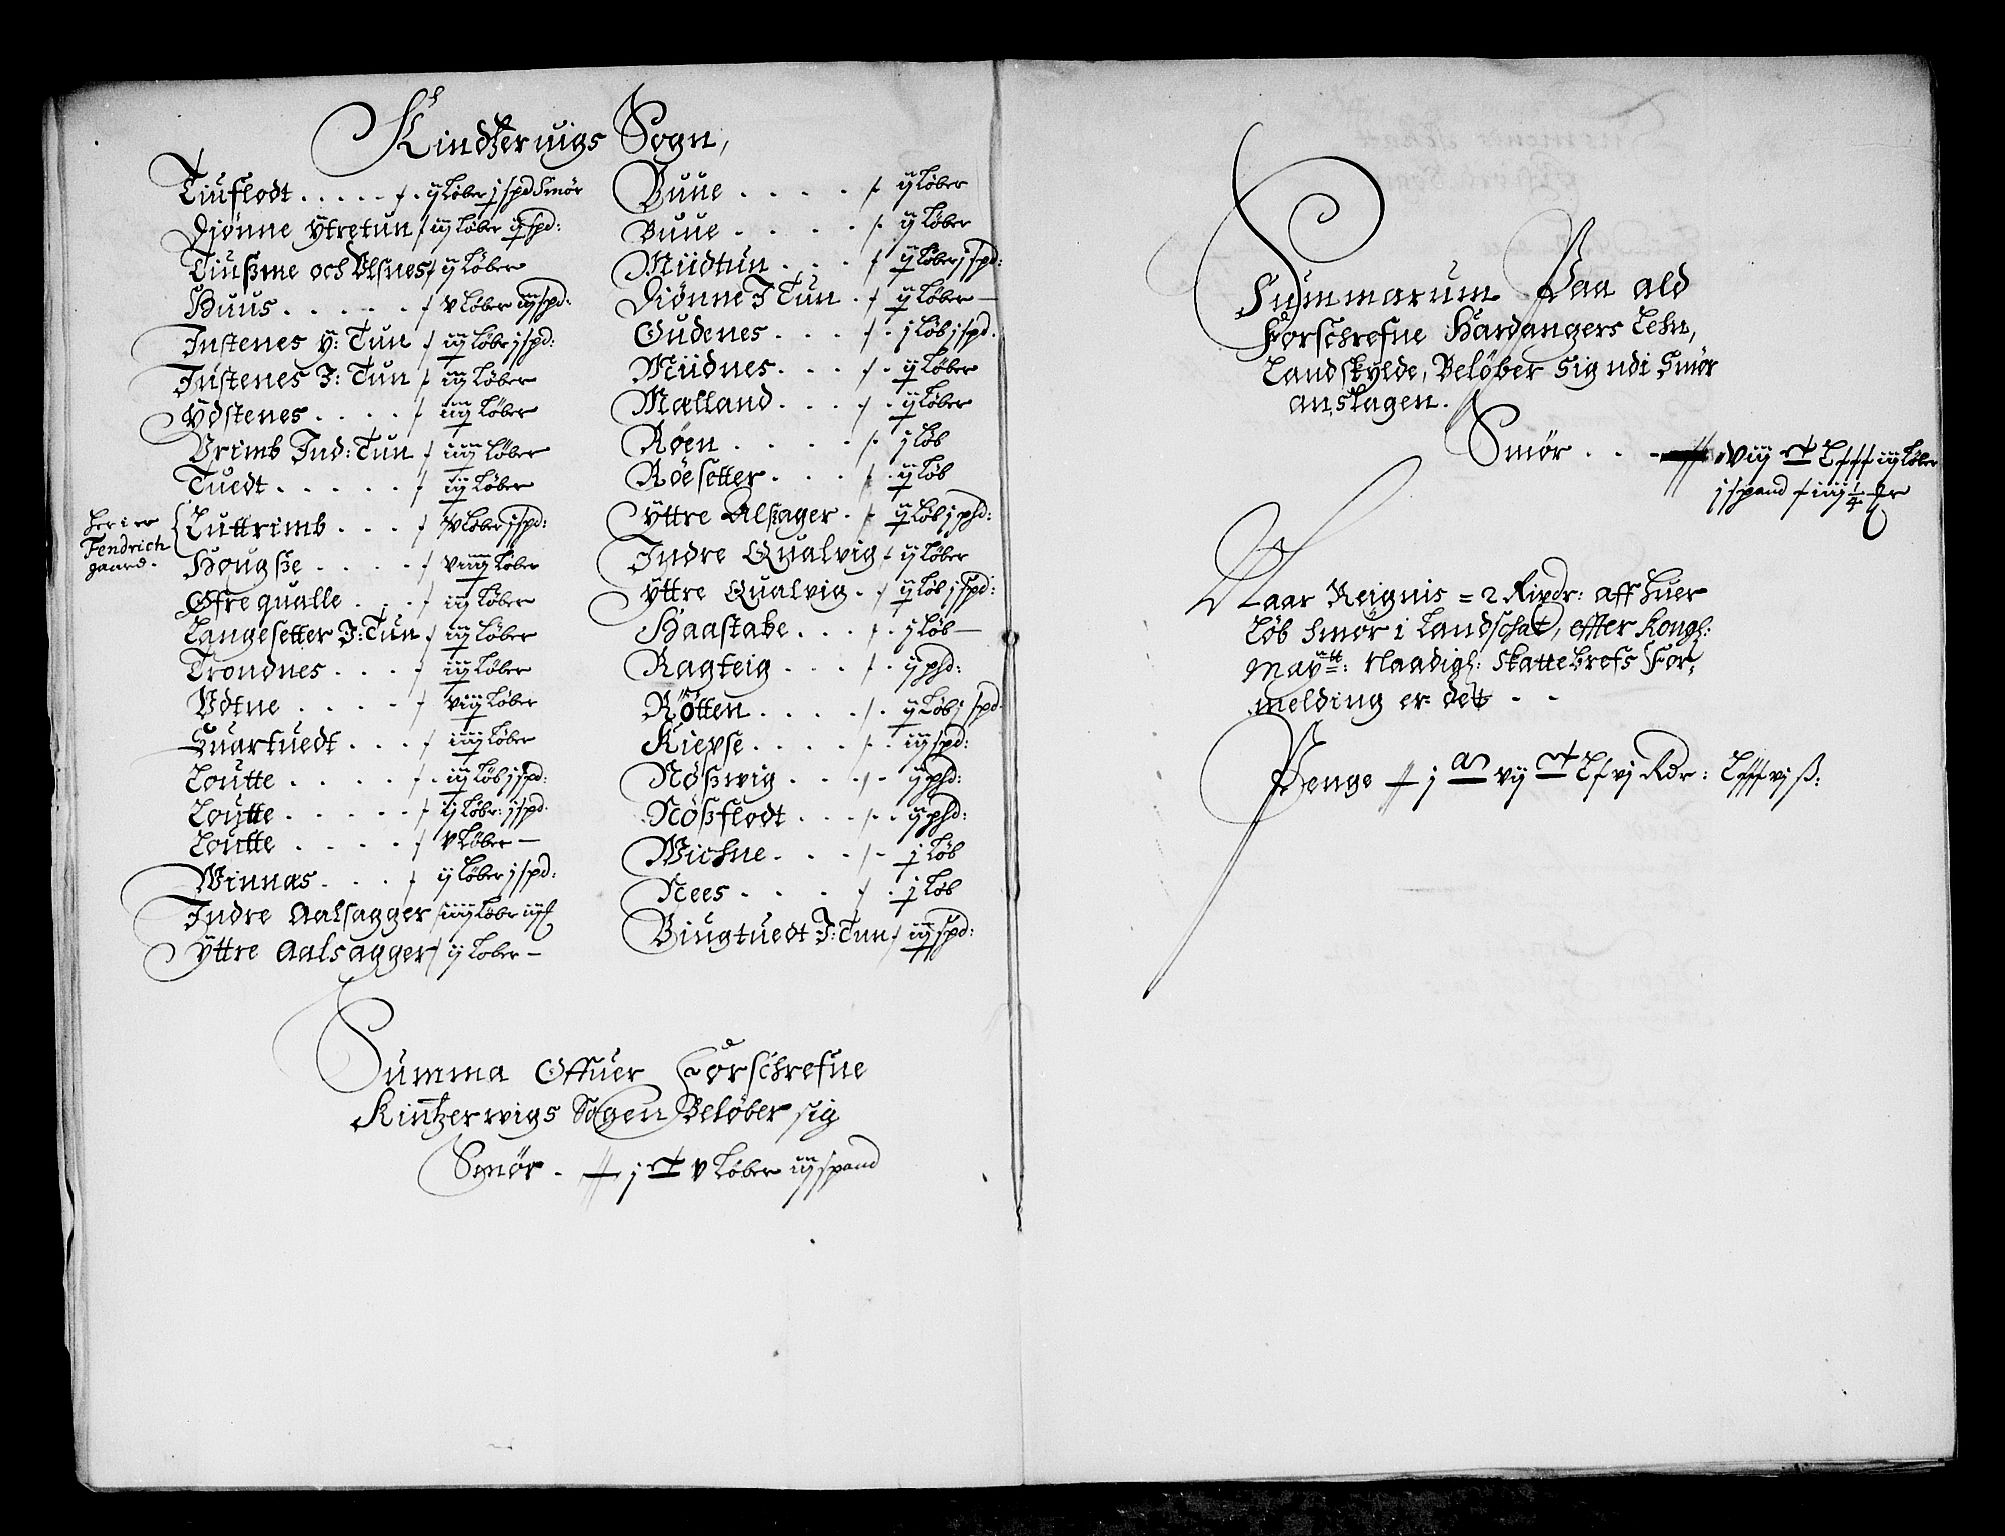 Kindzeruigs Sogn,
Tiuflodt . . . . . ij Løber j spd Smør
Diønne ytretun iij Løber ij spd:
Tiußme och Vlsnes ij Løber
Huus . . . . . v Løber iij spd:
Instenes y: Tun iij Løbe j spd:
Instenes J: Tun iij Løber
Ydstenes . . . . iiij Løber
Vrimb Ind: Tun iiij Løber
Tuedt . . . . . iij Løber
Her i er
Fendrich
gaard.
Luttrimb . . . v Løber j spd:
Hougße . . . . viiij Løber
Ofre qualle . . . iij Løber
Langesetter J: Tun iij Løber
Trondnes . . . iij Løber
Vdtne . . . . viij Løber
Quartuedt . . . iiij Løber
Loutte . . . . iij Løb j spd:
Loutte . . . . . ij Løbr: j spd.
Loutte . . . . v Løber —
Winnæs . . . ij Løber j spd:
Indre Aalsagger iiij Løbr iij
yttre Aalsagger ij Løber —
Buue . . . . . ij Løber
Buue . . . . . ij Løber
Miidtun . . . ij Løber j spd:
Diønne J Tun . ij Løber —
Oudenes . . . . j Løb j spd.
Miidnes . . . . ij Løber
Mælland . . . . ij Løber
Røen . . . . . j Løb
Røesetter . . . . ij Løb
yttre Alsager . . ij Løb j phd:
Indre Qualvig ij Løber
yttre Qualvig . . ij Løb j spd:
Haastabe . . . . j Løb —
Ragteig . . . . ij phd:
Røtten . . . . . ij Løb j spd.
Kiepse . . . . . iij spd:
Nößwig . . . ij phd:
Nößflodt . . . . ij phd:
Wichne . . . . j Løb
Nees . . . . . j Løb
Biugtuedt J: Tun iij spd:
Summa Offuer Forschrefne
Kintzerwigs Sogen Beløber sig
Smør . j ct v Løber iij spand
Summarum Paa ald
Forschrefne Hardangers Lehn,
Landskylde, Beløber sig udi Smør
anslagen.
Smør . . . viij ct Lxxx iij Løber
j spand iiij 1/4
Naar Reignis = 2 Rixdr: aff huer
Løb Smør i Landschat, effter Kongl:
Maytt: Naadigl: Skattebrefs For,
melding er dett . .
Penge j m vij ct Lxvj Rdr: Lxxxvj ß: